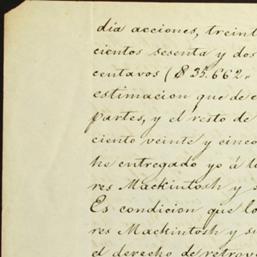 dia acciones, treint
cientos sesenta y dos
centavos ($ 35.662.
estimacion que de c
partes, y el resto de
ciento veinte y cinco
he entregado yo á l
res Mackintosh y s
Es condicion que lo
res Mackintosh y su
el derecho de retrov